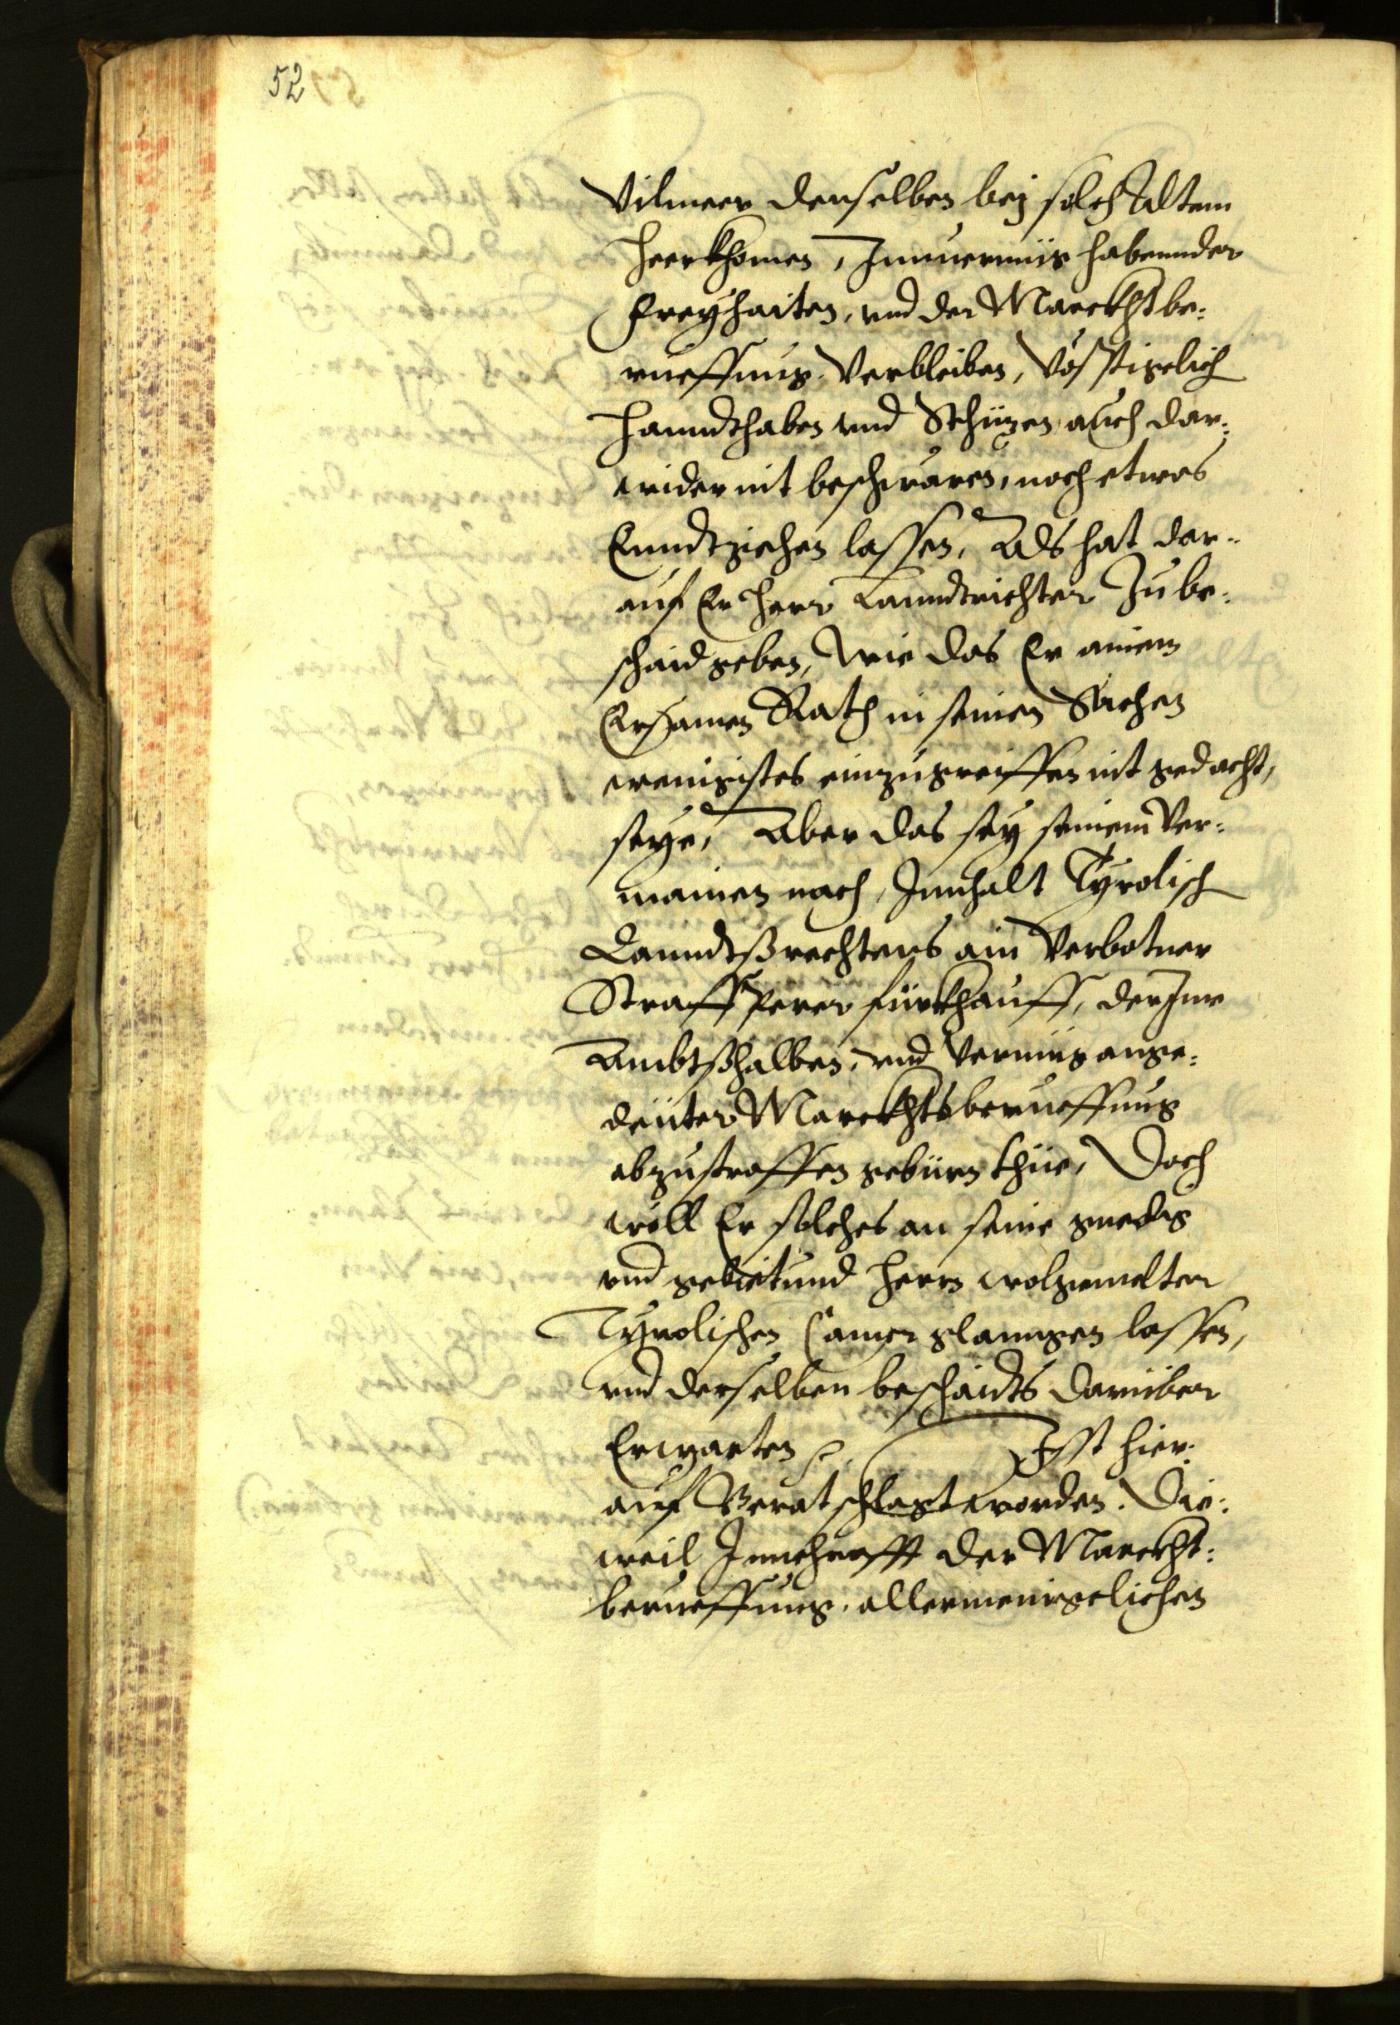 52
Vilmeer denselben bej solch Altem
Heerkhomen, Innvermüg habennder
Freyhaiten, vnd der Marckhtbe:
rueffung Verbleiben, vösstigelich
Hanndthaben vnd Schüzen, auch dar:
wider nit beschwären, noch etwas
Enndtziehen lassen, Als hat dar:
auf Er Herr Lanndtrichter Zu be:
schaid geben, Wie das Er ainem
Ersamen Rath in seinen Sachen
wenigistes einzugreiffen nit gedacht,
seye, Aber das sey seinem Ver:
mainen nach, Innhalt Tyrolisch
Lanndtßrechtens ain Verbotner
Straffperer fürkhauff, der Ime
Ambtßhalben, vnd Vermüg ange:
deüter Marckhtsberueffung
abzustraffen gebürn thüe, Doch
wöll Er solches an seine gnedig
vnd gebietund Herrn wolgemelter
Tyrolischen Camer glanngen lassen,
vnd derselben beschaidts darüber
Erwarten Ist hier:
auf Beratschlagt worden. Die:
weil Inn chrafft der Marckht:
berueffung, allermenigelichen